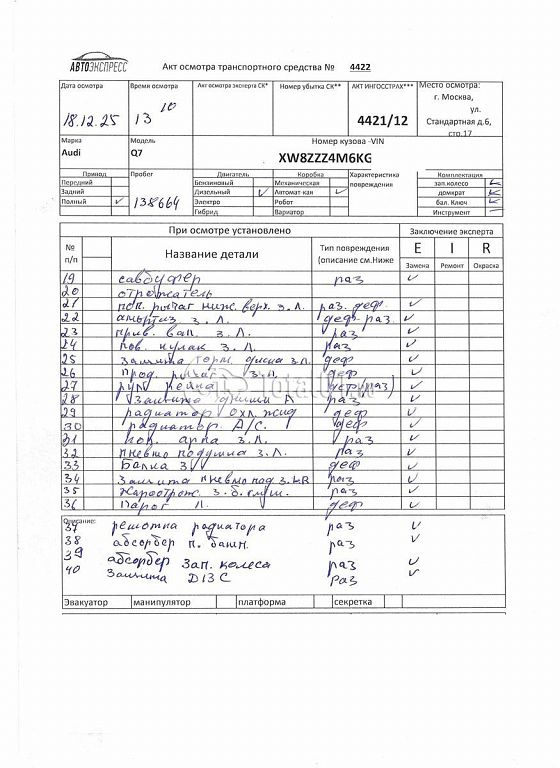 АВТОЭКСПРЕСС
Акт осмотра транспортного средства № 4422
Дата осмотра Время осмотра Акт осмотра эксперта СК* Номер убытка СК** АКТ ИНГОССТРАХ*** Место осмотра:
18.12.25 13 10 4421/12 г. Москва, ул. Стандартная д.6, стр.17
Марка Модель Номер кузова -VIN
Audi Q7 XW8ZZZ4M6KG
Привод Пробег Двигатель Коробка Характеристика повреждения Комплектация
Передний Бензиновый Механическая зап.колесо ✓
Задний 138664 Дизельный ✓ Автомат-кая ✓ домкрат ✓
Полный ✓ Электро Робот бал. Ключ ✓
Гибрид Вариатор Инструмент –
При осмотре установлено Заключение эксперта
№ п/п Название детали Тип повреждения (описание см.Ниже E I R
Замена Ремонт Окраска
19 сабвуфер раз ✓
20 отражатель
21 поп. рычаг ниж. верх. з.Л. раз. деф. ✓
22 амортиз з.Л. деф-раз ✓
23 прив. вал. з.Л. раз ✓
24 пов. кулак з.Л. раз ✓
25 Защита торм. диска з.л. деф ✓
26 Прод. рычаг з.л. деф ✓
27 рул рейка деф(раз) ✓
28 Защита днища Л раз ✓
29 радиатор охл. жид деф ✓
30 радиатор А/С. деф ✓
31 арка з.Л. раз ✓
32 пневмо подушка з.Л. раз ✓
33 Балка з деф ✓
34 Защита пневмо под з.LR раз ✓
35 з. б. глуш. раз ✓
36 Порог Л. деф ✓
Описание:
37 решотка радиатора раз ✓
38 абсорбер п. бамп. раз ✓
39 абсорбер зап. колеса раз ✓
40 Защита ДВС раз ✓
Эвакуатор манипулятор платформа секретка